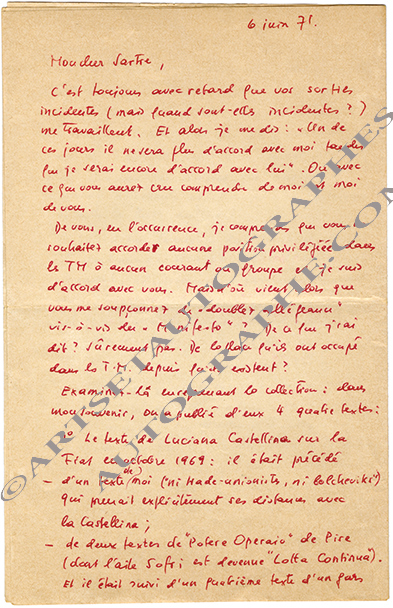 6 juin 71.
Mon cher Sartre,
C'est toujours avec retard que vos sorties
incidentes (mais quand sont-elles incidentes ?)
me travaillent. Et alors je me dis : « Un de
ces jours il ne sera plus d'accord avec moi tandis
que je serai encore d'accord avec lui". Ou avec
ce que vous aurez cru comprendre de moi et moi
de vous.
De vous, en l'occurrence, je comprends que vous
souhaitez accorder aucune position privilégiée dans
les TM à aucun courant ou groupe et je suis
d'accord avec vous. Mais d'où vient alors que
vous me soupçonnez de « double allégeance"
vis-à-vis du « Manifesto" ? De ce que j'ai
dit ? Sûrement pas. De la place qu'ils ont occupé
dans les T.M. depuis qu'ils existent ?
Examinons-là en reprenant la collection : dans
mon souvenir, on a publié d'eux 4 quatre textes :
1° Le texte de Luciana Castellina sur la
Fiat en octobre 1969 : il était précédé
– d'un texte de moi ("ni trade-unionistes, ni bolcheviks")
qui prenait explicitement ses distances avec
la Castellina ;
– de deux textes de "Potere Operaio" de Pise
(dont l'aile Sofri est devenue "Lotta Continua").
Et il était suivi d'un quatrième texte d'un gars
©ARTSETAUTOGRAPHES
AUTOGRAPHE.COM